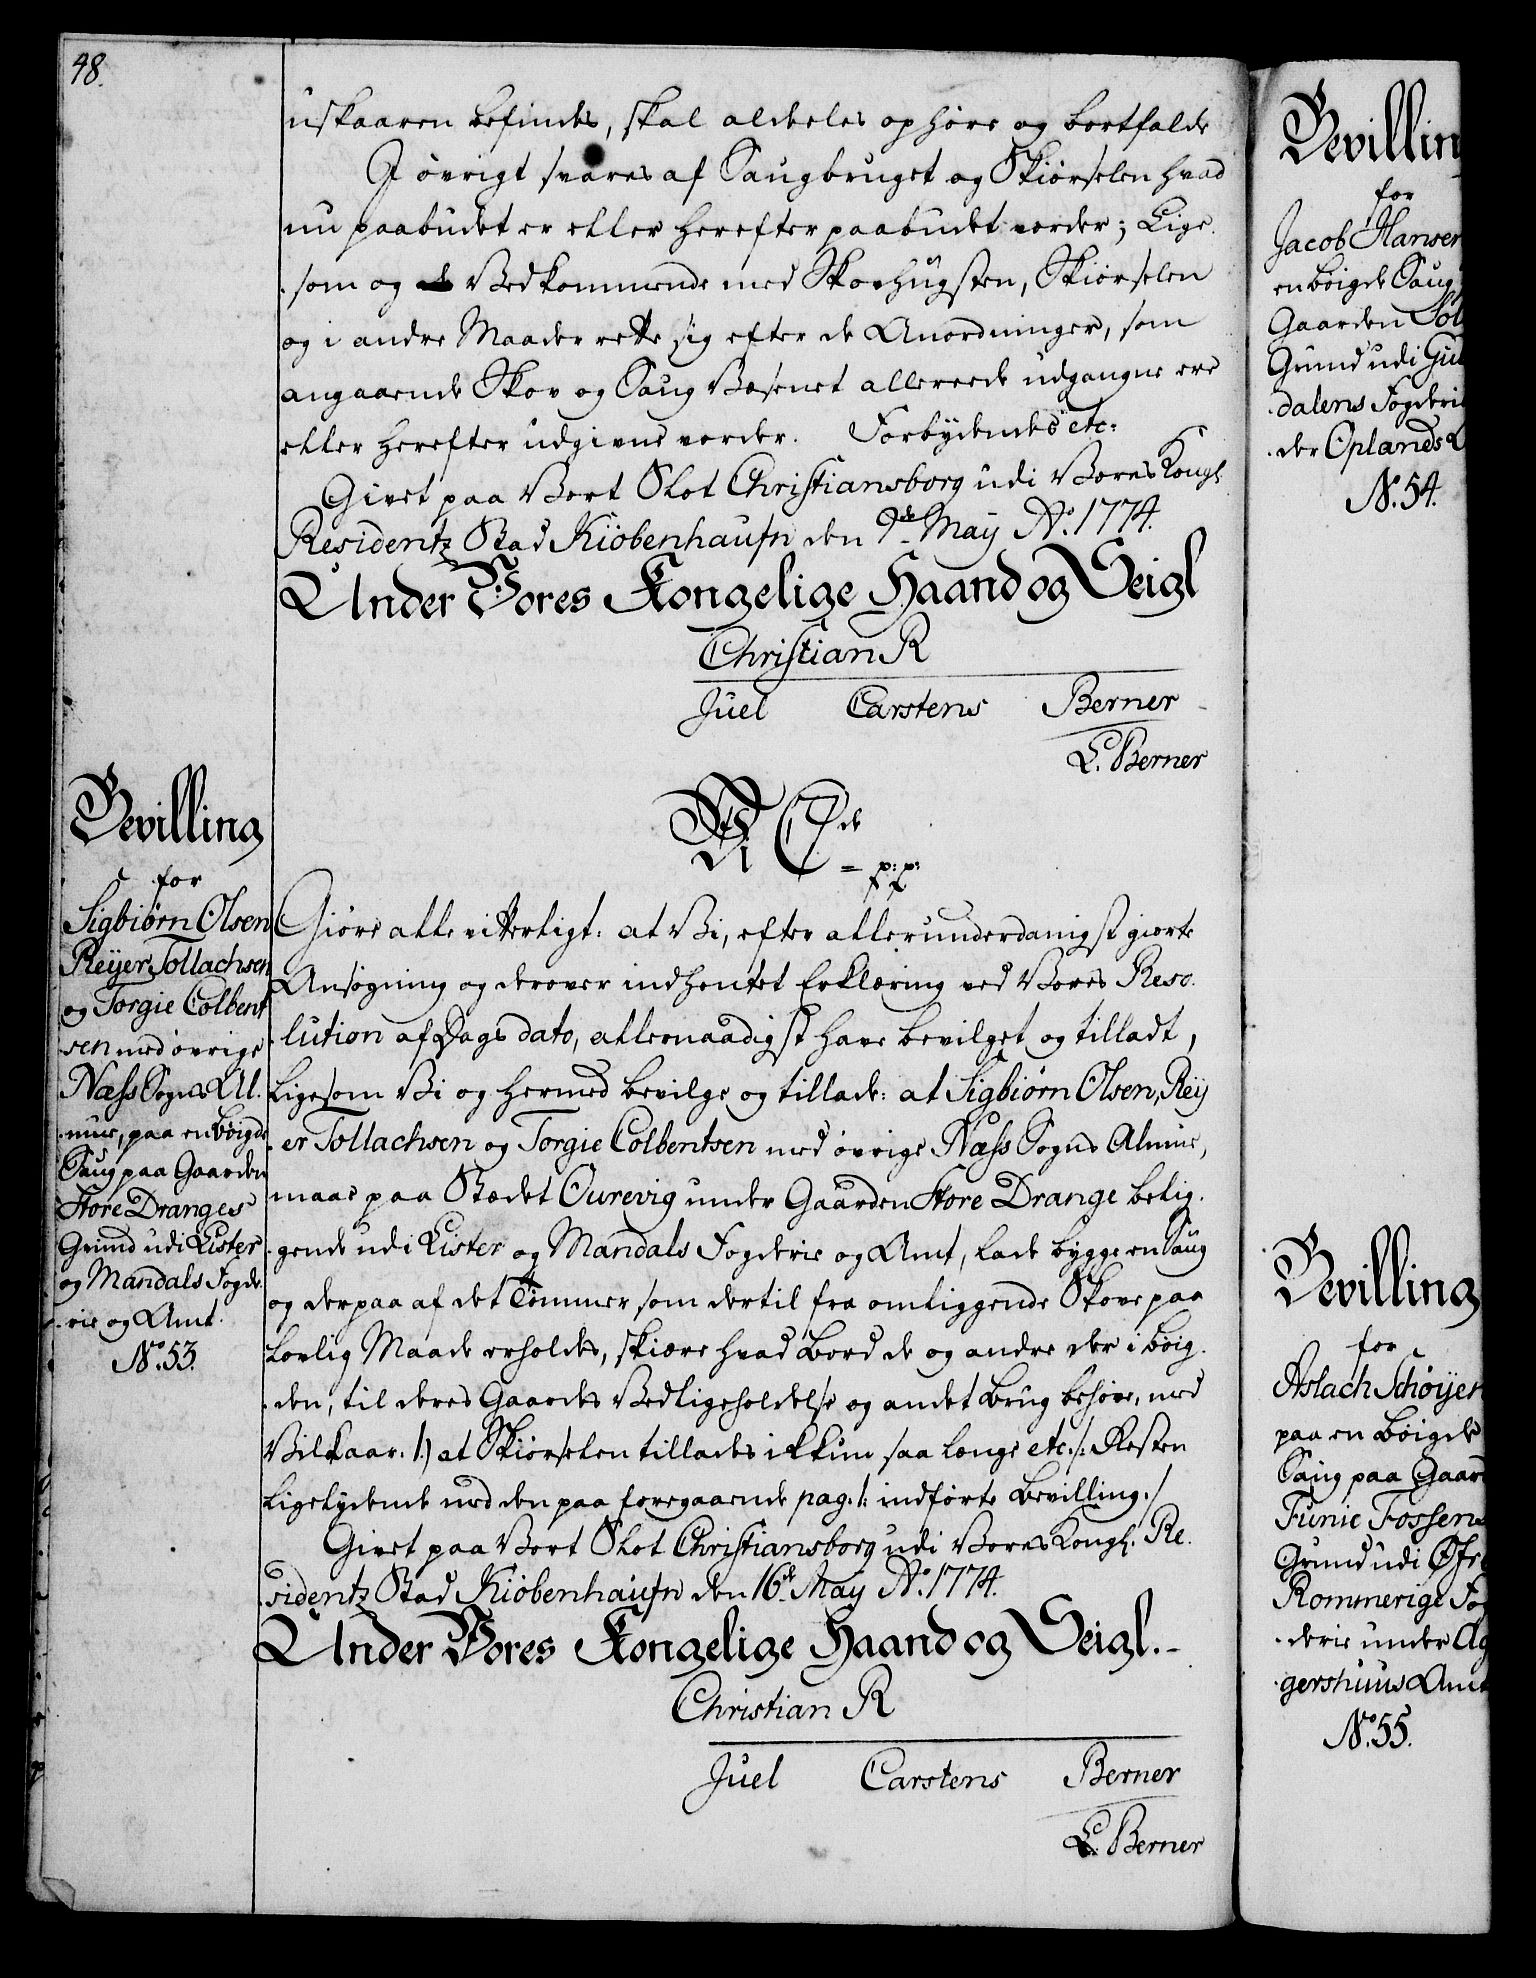 48.
uskaaren befindes, skal aldeeles ophøre og bortfalde
I øvrigt svares af Saugbruget og Skiørselen hvad
nu paabudet er eller herefter paabudet vorder; Lige-
som og Vedkommende med Skovhugsten, Skiørselen
og i andre Maader rette sig efter de Anordninger, som
angaaende Skov og Saug Væsenet allereede udgangne ere
eller herefter udgivne vorder. Forbydendes etc:
Givet paa Vort Slot Christiansborg udi Vores Kongl:
Residentz Stad Kiöbenhaufn den 9de May Ao. 1774.
Under Vores Kongelige Haand og Seigl
Christian R
Juel Carstens Berner
L. Berner
Bevilling
for
Sigbiørn Olsen
Reyer Tollachsen
og Torgie Colbent
sen med øvrige
Næss Sogns Al-
mue, paa en böigde
Saug paa Gaarden
Store Dranges
Grund udi Lister
og Mandals Fogde-
rie og Amt.
No. 53.
Vi C 7de = p: p:
Giøre alle vitterligt: at Vi, efter allerunderdanigst giorte
Ansøgning og derover indhentet Erklæring ved Vores Reso-
lution af Dags dato, allernaadigst have bevilget og tilladt,
Ligesom Vi og hermed bevilge og tillade: at Sigbiørn Olsen, Rey
er Tollachsen og Torgie Colbentsen med øvrige Næss Sogns Almue,
maae paa Stædet Ourevig under Gaarden Store Drange belig-
gende udi Lister og Mandals Fogderie og Amt, lade bygge en Saug
og derpaa af det Tømmer, som dertil fra omliggende Skove paa
Lovlig Maade erholdes, skiære hvad Bord de og andre der i böig-
den, til deres Gaardes Vedligeholdelse og andet Brug behøve, med
Vilkaar. 1.) at Skiørselen tillades ikkun saa længe etc: /: Resten
Ligelydende med den paa foregaaende pag: 1: indførte Bevilling. /
Givet paa Vort Slot Christiansborg udi Vores Kongl: Re-
sidentz Stad Kiöbenhaufn den 16de May Ao. 1774.
Under Vores Kongelige Haand og Seigl.
Christian R
Juel Carstens Berner
L. Berner
Bevillin
for
Jacob Hansen
en böigde Saug
Gaarden
Grund udi
dalens Fogderie
der Oplands
No. 54.
Bevilling
for
Aslach Schöyen
paa en Böigde
Saug paa Gaard
Funie Fossens
Grund udi Øfre
Rommerige Fog
derie under Ag
gershuus Amt
No. 55.